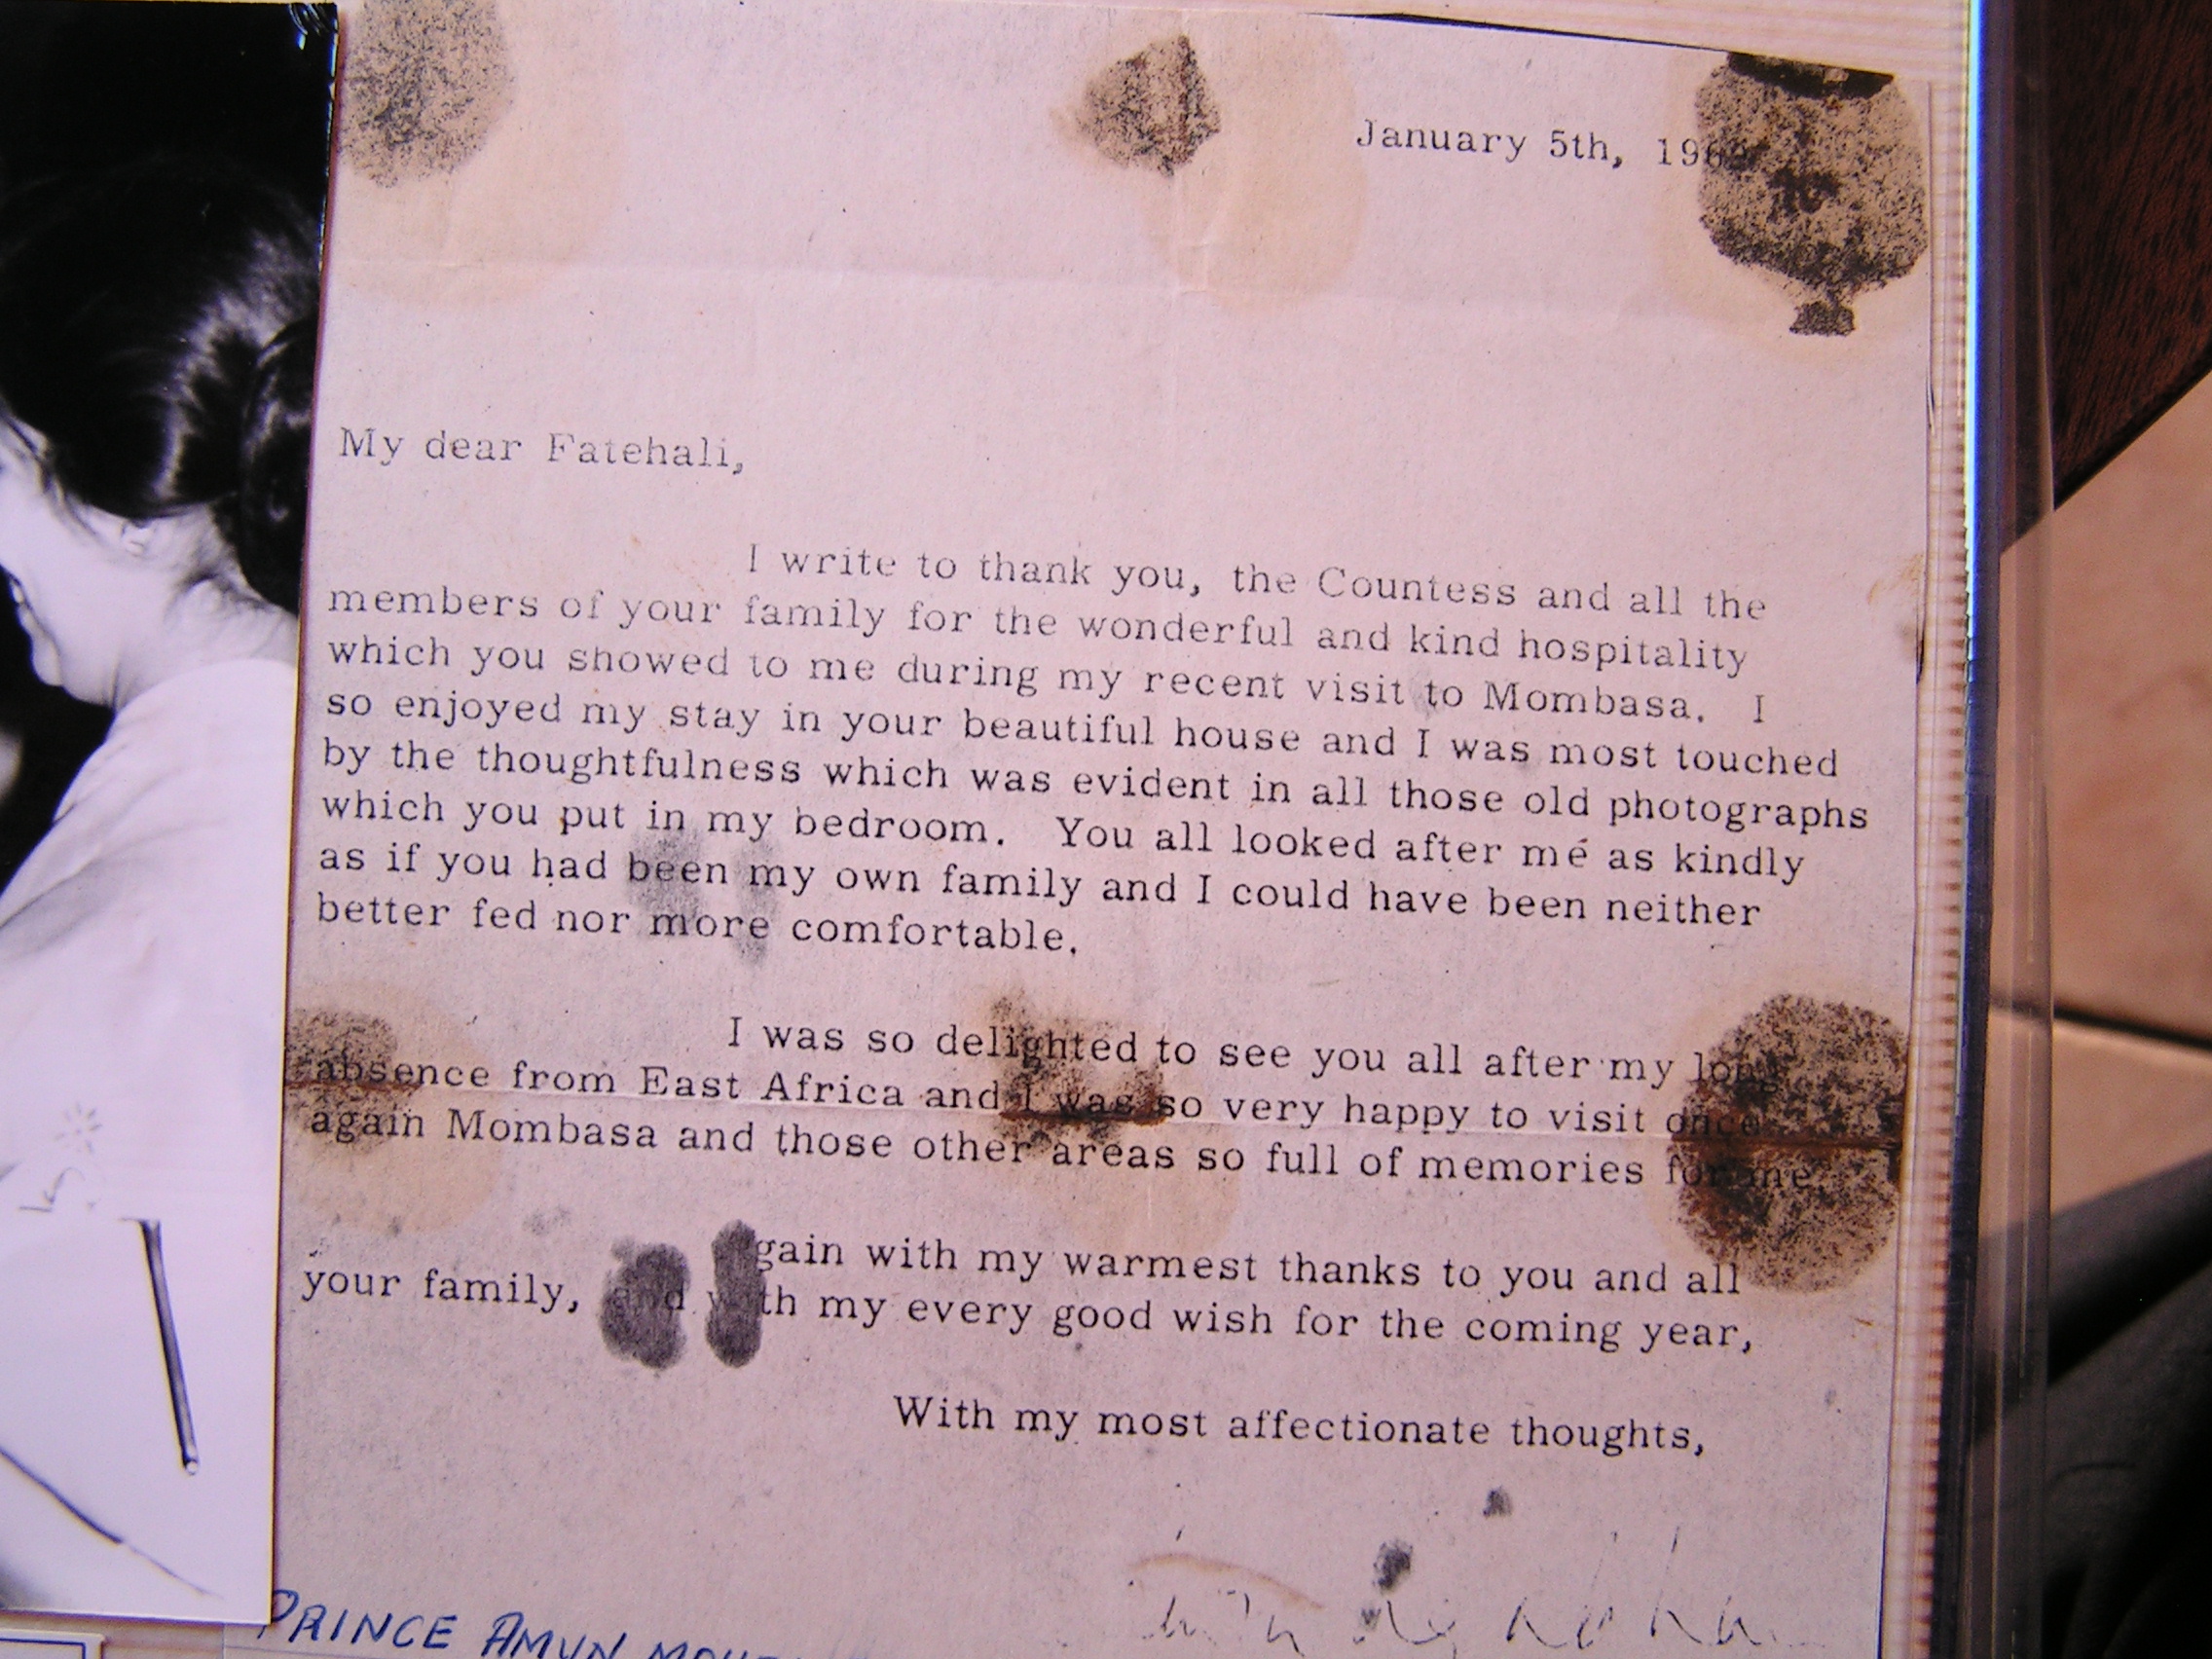 January 5th, 196
My dear Fatehali,
I write to thank you, the Countess and all the
members of your family for the wonderful and kind hospitality
which you showed to me during my recent visit to Mombasa. I
so enjoyed my stay in your beautiful house and I was most touched
by the thoughtfulness which was evident in all those old photographs
which you put in my bedroom. You all looked after me as kindly
as if you had been my own family and I could have been neither
better fed nor more comfortable.
I was so delighted to see you all after my long
absence from East Africa and I was so very happy to visit once
again Mombasa and those other areas so full of memories for me.
Again with my warmest thanks to you and all
your family, and with my every good wish for the coming year,
With my most affectionate thoughts,
PRINCE AMYN